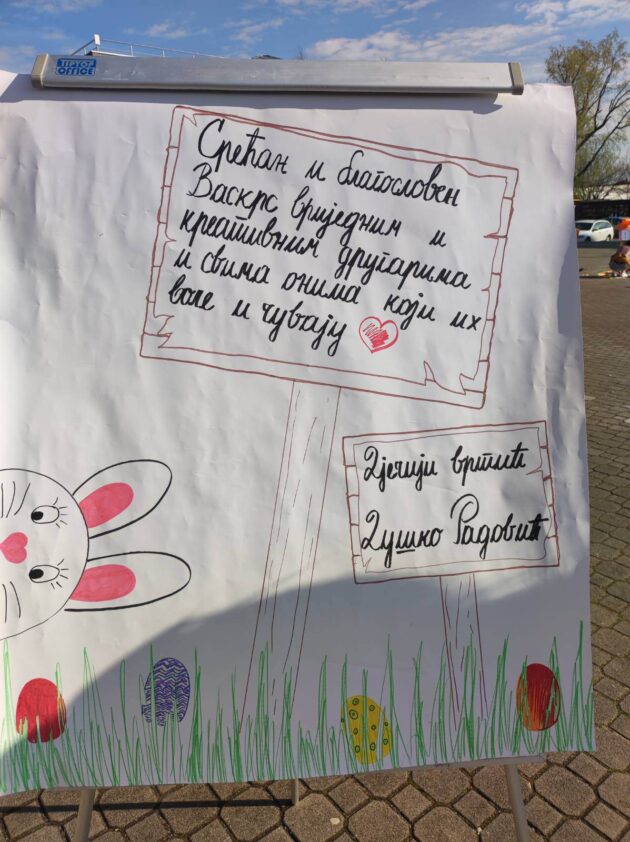 TIPTOP
OFFICE
Срећан и благословен
Васкрс вриједним и
креативним другарима
и свима онима који их
воле и чувају
Дјечији вртић
Душко Радовић